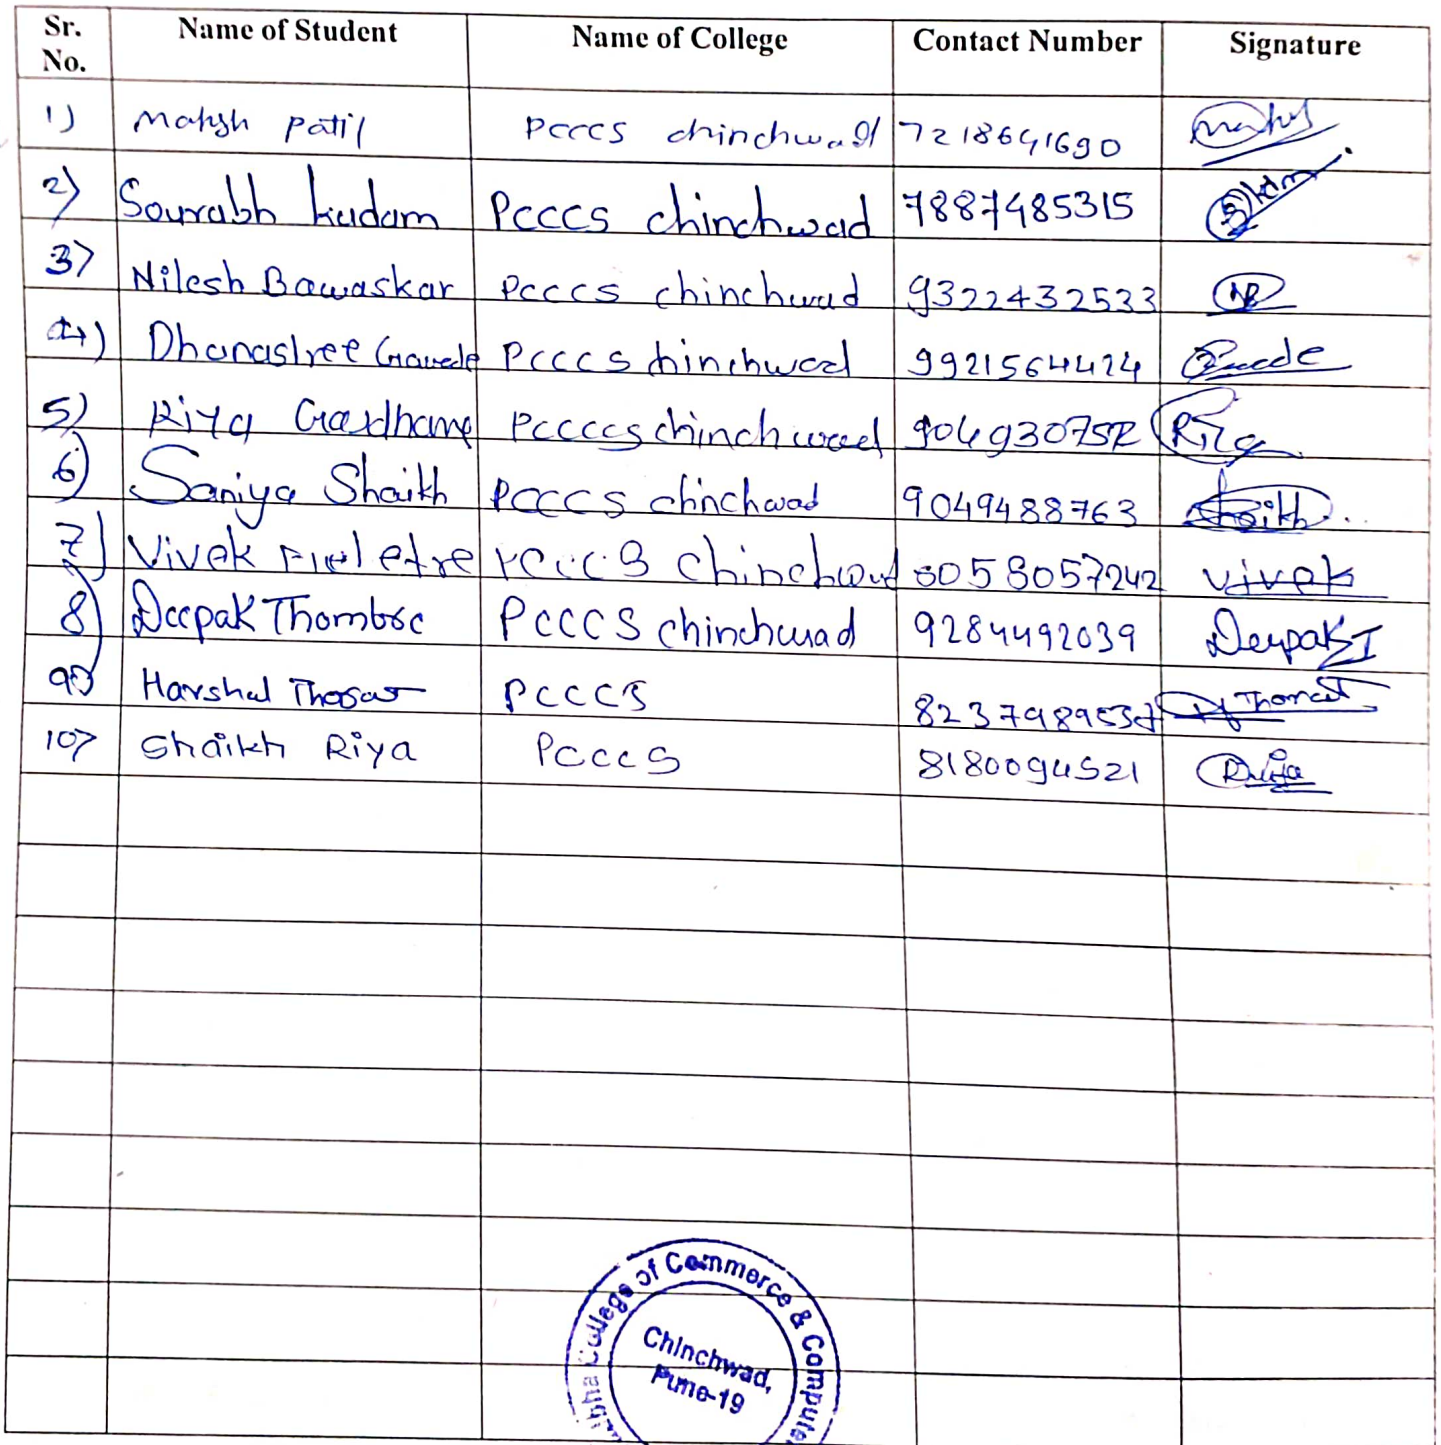 Sr. No. Name of Student Name of College Contact Number Signature
1) Mahesh Patil PCCCS chinchwad 7218641690
2) Sourabh kudam PCCCS chinchwad 7887485315
3) Nilesh Bawaskar PCCCS chinchwad 9322432533 NB
4) Dhanashree Gawade PCCCS chinchwad 9921564424
5) Riya Gardhame PCCCCS chinchwad Riya
6) Saniya Shaikh PCCCS chinchwad 9049488763 Shaikh
7) Vivek PCCCS Chinchwad Vivek
8) Deepak Thombre PCCCS chinchwad 9284492039 Deepak T
9) Harshal PCCCS
10) Shaikh Riya PCCCS 8180094521 Riya
College of Commerce & Computer
Chinchwad,
Pune-19